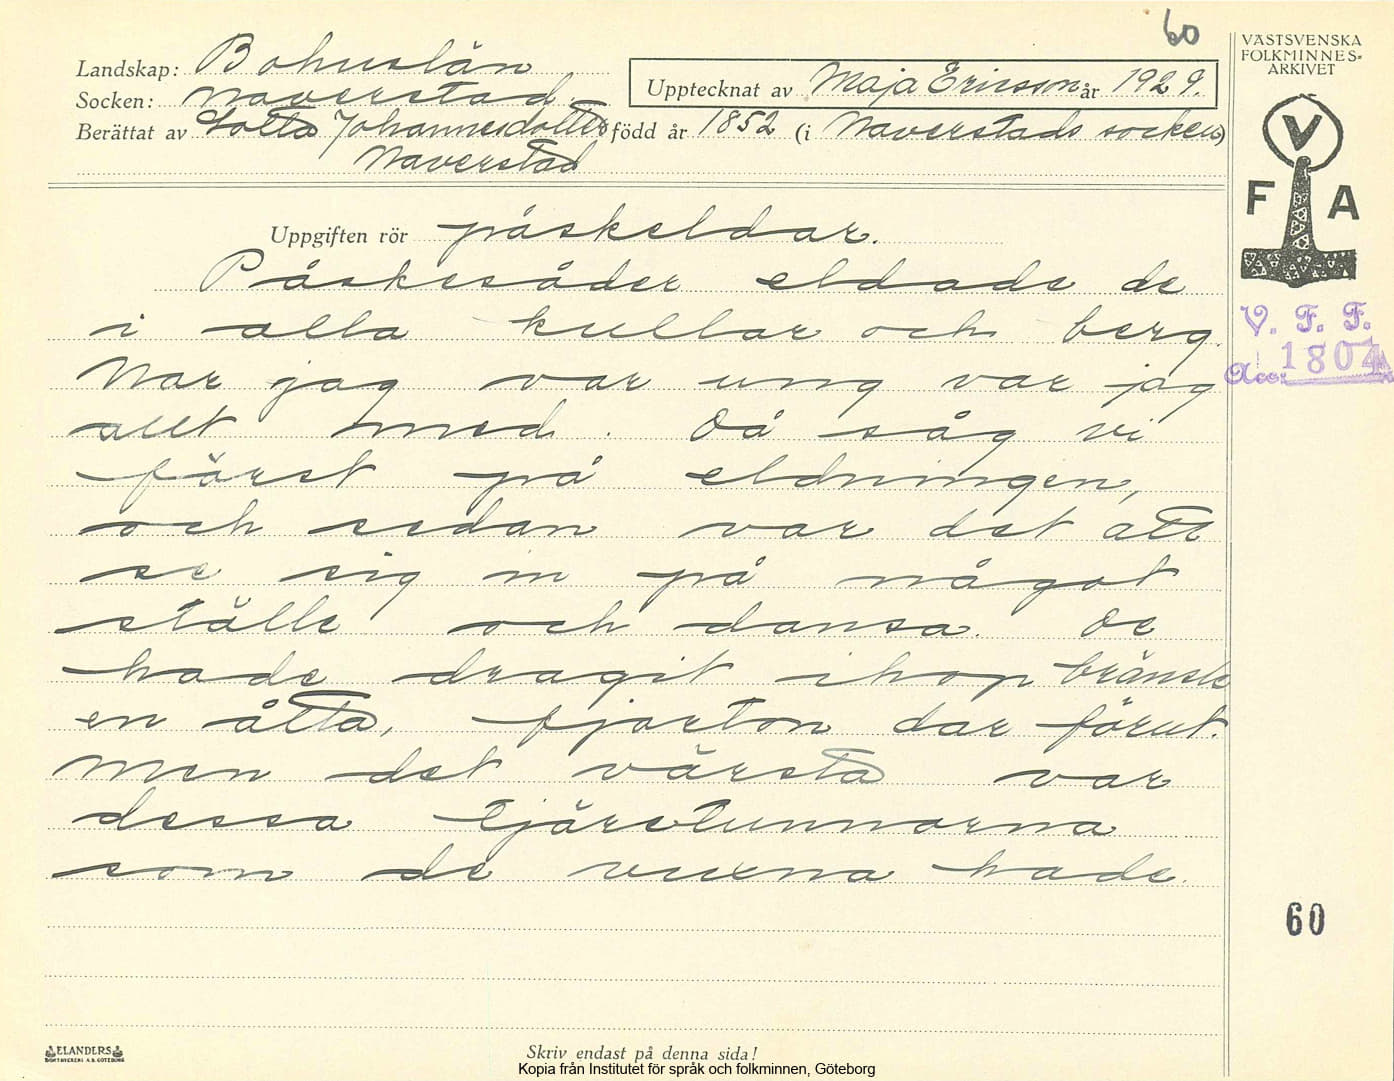 60
Landskap: Bohuslän
Socken: Naverstad.
Upptecknat av Maja Ericsson år 1929.
Berättat av Lotta Johannesdotter född år 1852 (i Naverstads socken)
Naverstad
VÄSTSVENSKA
FOLKMINNES-
ARKIVET
V
F A
V. F. F.
Acc. 1804
Uppgiften rör påskeldar.
Påskesåder eldade de
i alla kullar och berg.
När jag var ung var jag
allt med. Då såg vi
först på eldningen,
och sedan var det att
se sig in på något
ställe och dansa. De
hade dragit ihop bränsle
en åtta, fjorton dar förut.
Men det värsta var
dessa tjäretunnorna
som de vuxna hade.
60
ELANDERS
BOKTRYCKERI A.B. GÖTEBORG
Skriv endast på denna sida!
Kopia från Institutet för språk och folkminnen, Göteborg